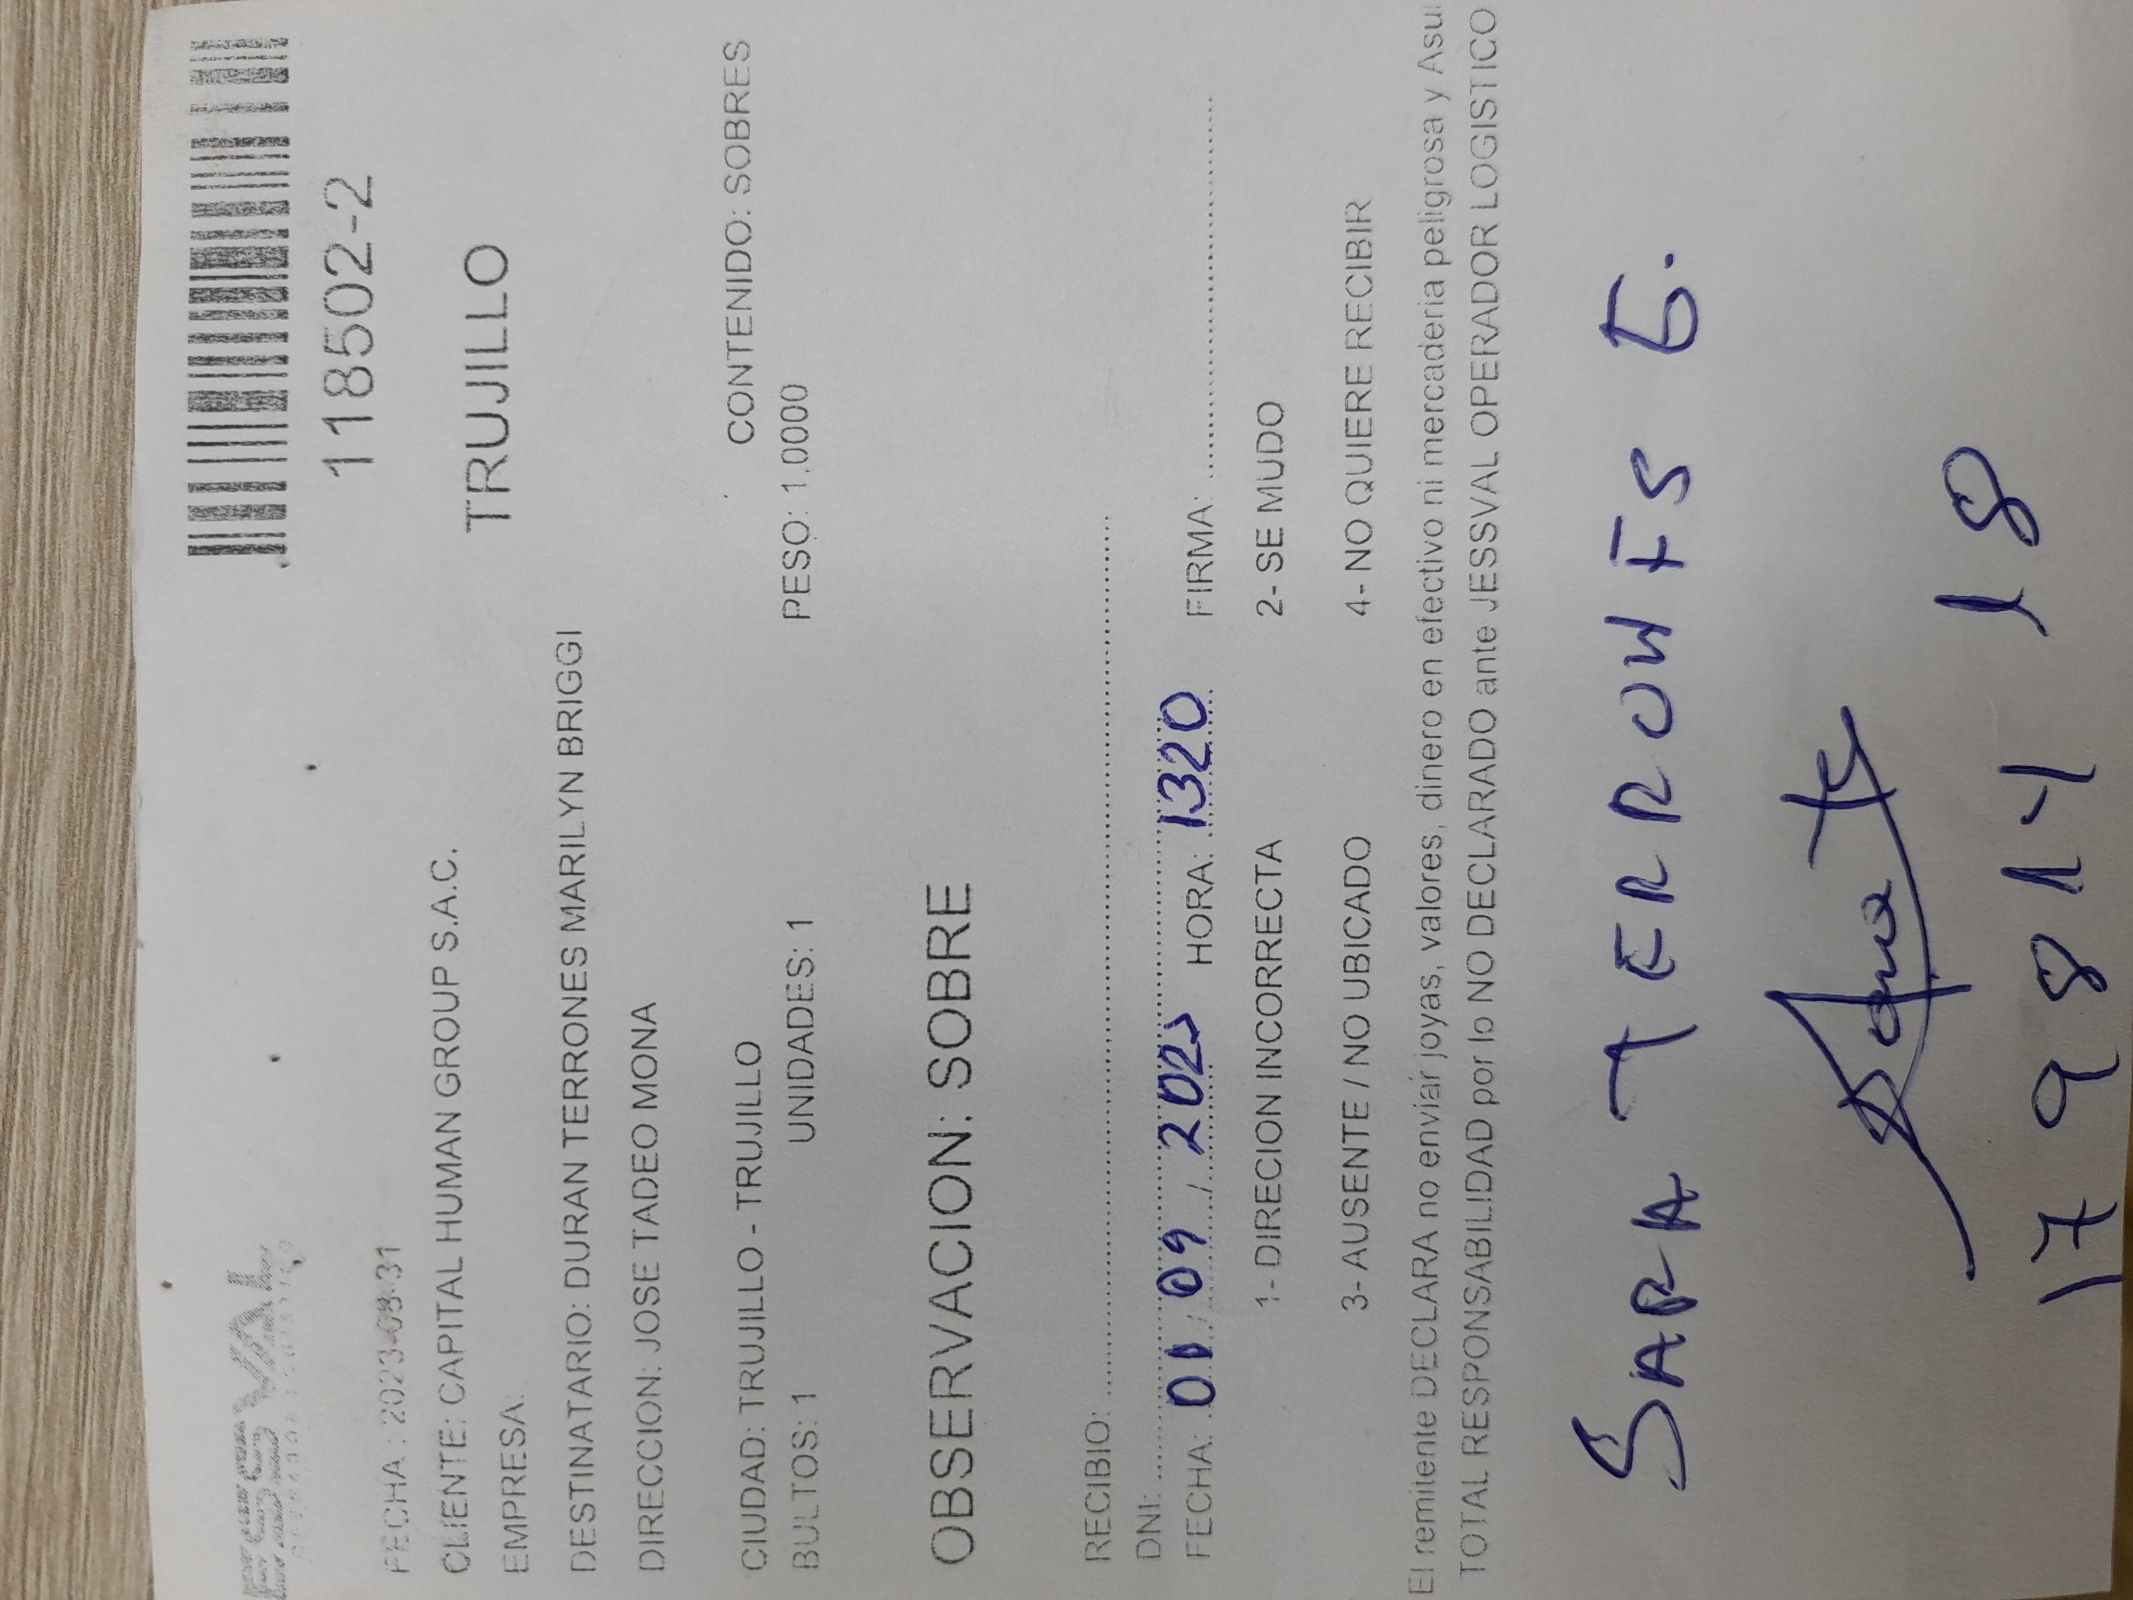 ESSVAL
OPERADOR LOGISTICO
118502-2
FECHA : 2023-08-31
CLIENTE: CAPITAL HUMAN GROUP S.A.C.
TRUJILLO
EMPRESA:
DESTINATARIO: DURAN TERRONES MARILYN BRIGGI
DIRECCION: JOSE TADEO MONA
CIUDAD: TRUJILLO - TRUJILLO CONTENIDO: SOBRES
BULTOS: 1 UNIDADES: 1 PESO: 1.0000
OBSERVACION: SOBRE
RECIBIO:
DNI:
FECHA: 01 / 09 / 2023 HORA: 1320 FIRMA:
1- DIRECION INCORRECTA 2- SE MUDO
3- AUSENTE / NO UBICADO 4- NO QUIERE RECIBIR
El remitente DECLARA no enviar joyas, valores, dinero en efectivo ni mercaderia peligrosa y Asu
TOTAL RESPONSABILIDAD por lo NO DECLARADO ante JESSVAL OPERADOR LOGISTICO
SARA TERRONES E.
Sara Te
17 9814 18